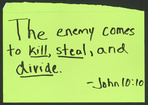 The enemy comes
to kill, steal, and
divide.
-John 10:10